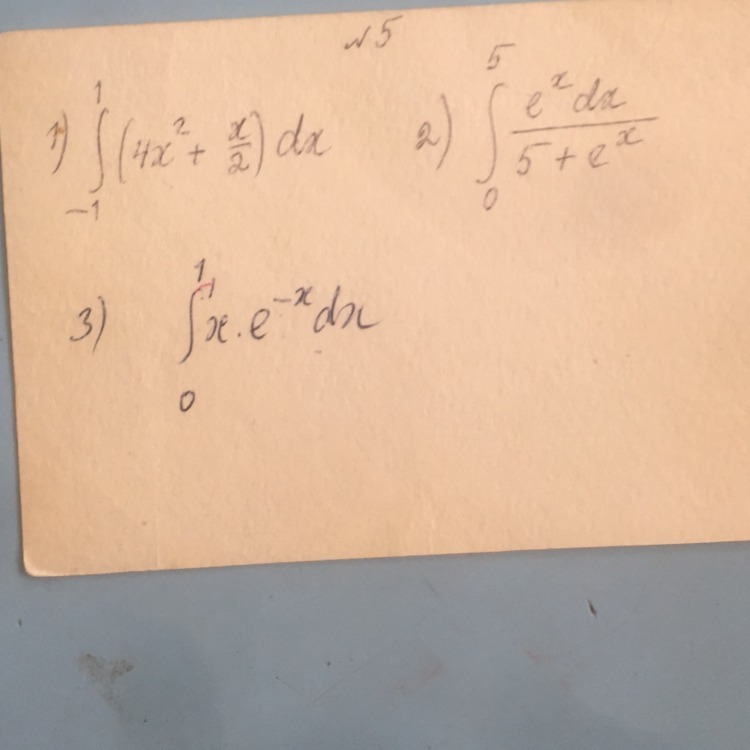 №5
1) ∫₋₁¹ (4x² + x/2) dx 2) ∫₀⁵ eˣdx / (5 + eˣ)
3) ∫₀¹ x · e⁻ˣ dx